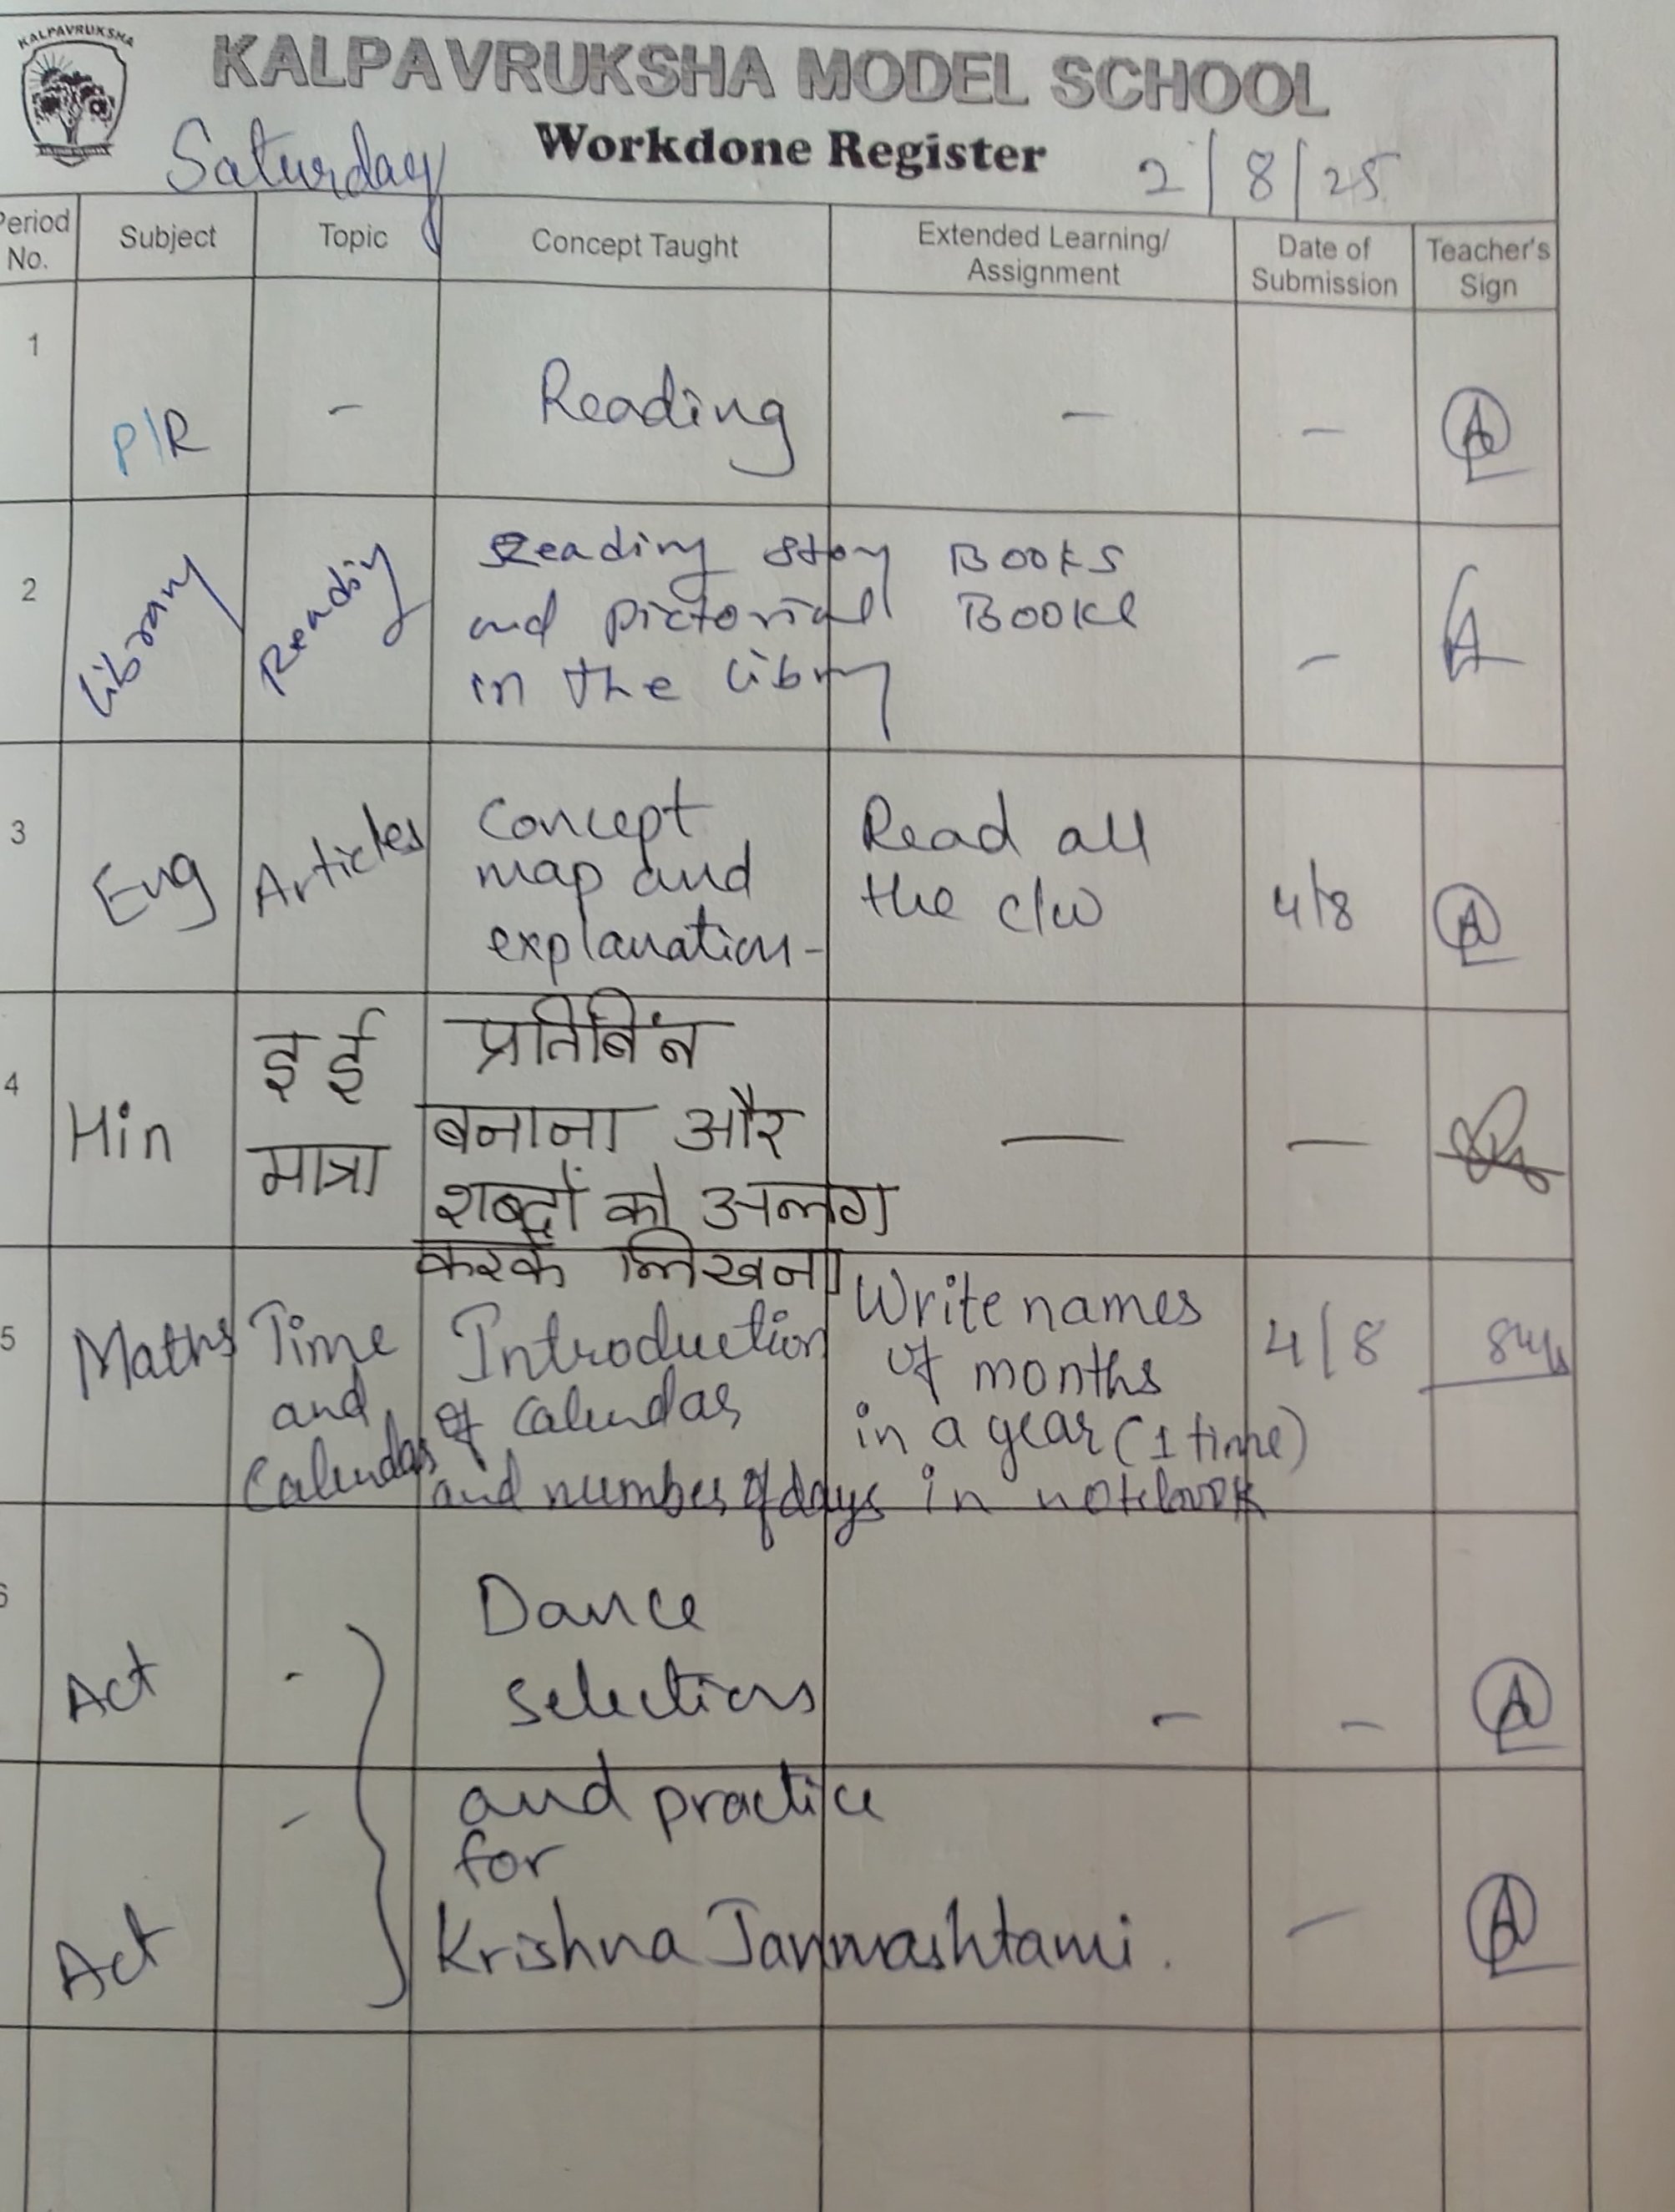 KALPAVRUKSHA
KALPAVRUKSHA MODEL SCHOOL
Workdone Register
Saturday
2/8/25
Period No.
Subject
Topic
Concept Taught
Extended Learning/
Assignment
Date of
Submission
Teacher's
Sign
1
P/R
-
Reading
-
-
2
Library
Reading
Reading story Books
and pictorial Books
in the library
-
3
Eng
Articles
Concept
map and
explanation-
Read all
the c/w
4/8
4
Hin
इ ई
मात्रा
प्रतिबिंब
बनाना और
शब्दों को अलग
करके लिखना
-
-
5
Maths
Time
and
Calendar
Introduction
of Calendar
and number of days in notebook
Write names
of months
in a year (1 time)
4/8
6
Act
-
Dance
selections
-
-
Act
-
and practice
for
Krishna Janmashtami.
-